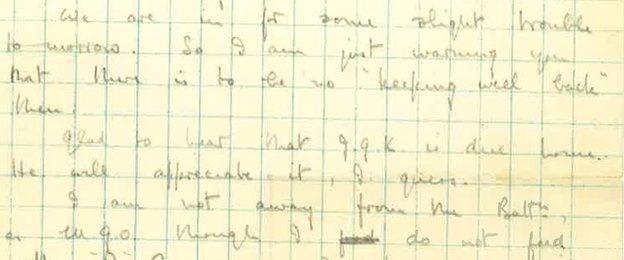 We are in for some slight trouble
to-morrow. So I am just warning you
that there is to be no "keeping well back"
then.
Glad to hear that J.G.K. is due home.
He will appreciate it, I guess.
I am not away from the Battn,
as M.G.O. though I do not find